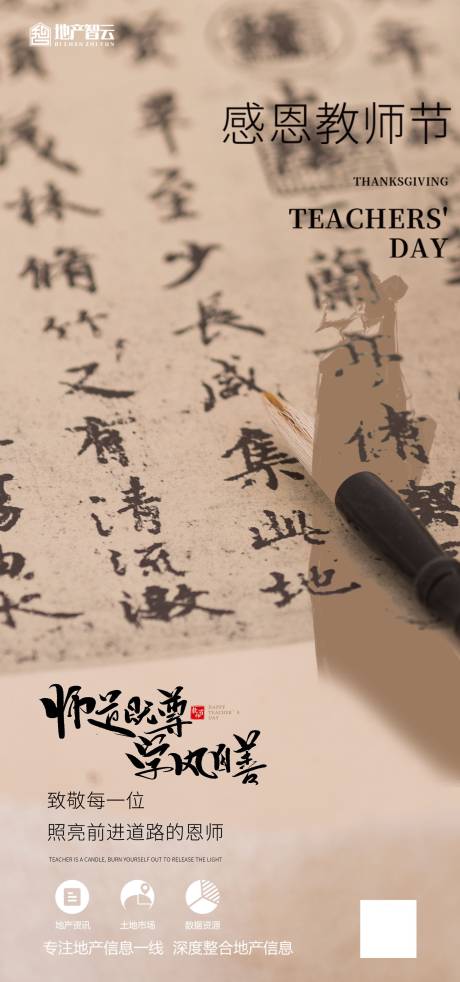 地产智云
DI CHAN ZHI YUN
感恩教师节
THANKSGIVING
TEACHERS'
DAY
至少長咸集此地
蘭亭
林脩竹又有清流激
师道既尊
学风自善
HAPPY
TEACHER'S
DAY
致敬每一位
照亮前进道路的恩师
TEACHER IS A CANDLE, BURN YOURSELF OUT TO RELEASE THE LIGHT
地产资讯
土地市场
数据资源
专注地产信息一线 深度整合地产信息